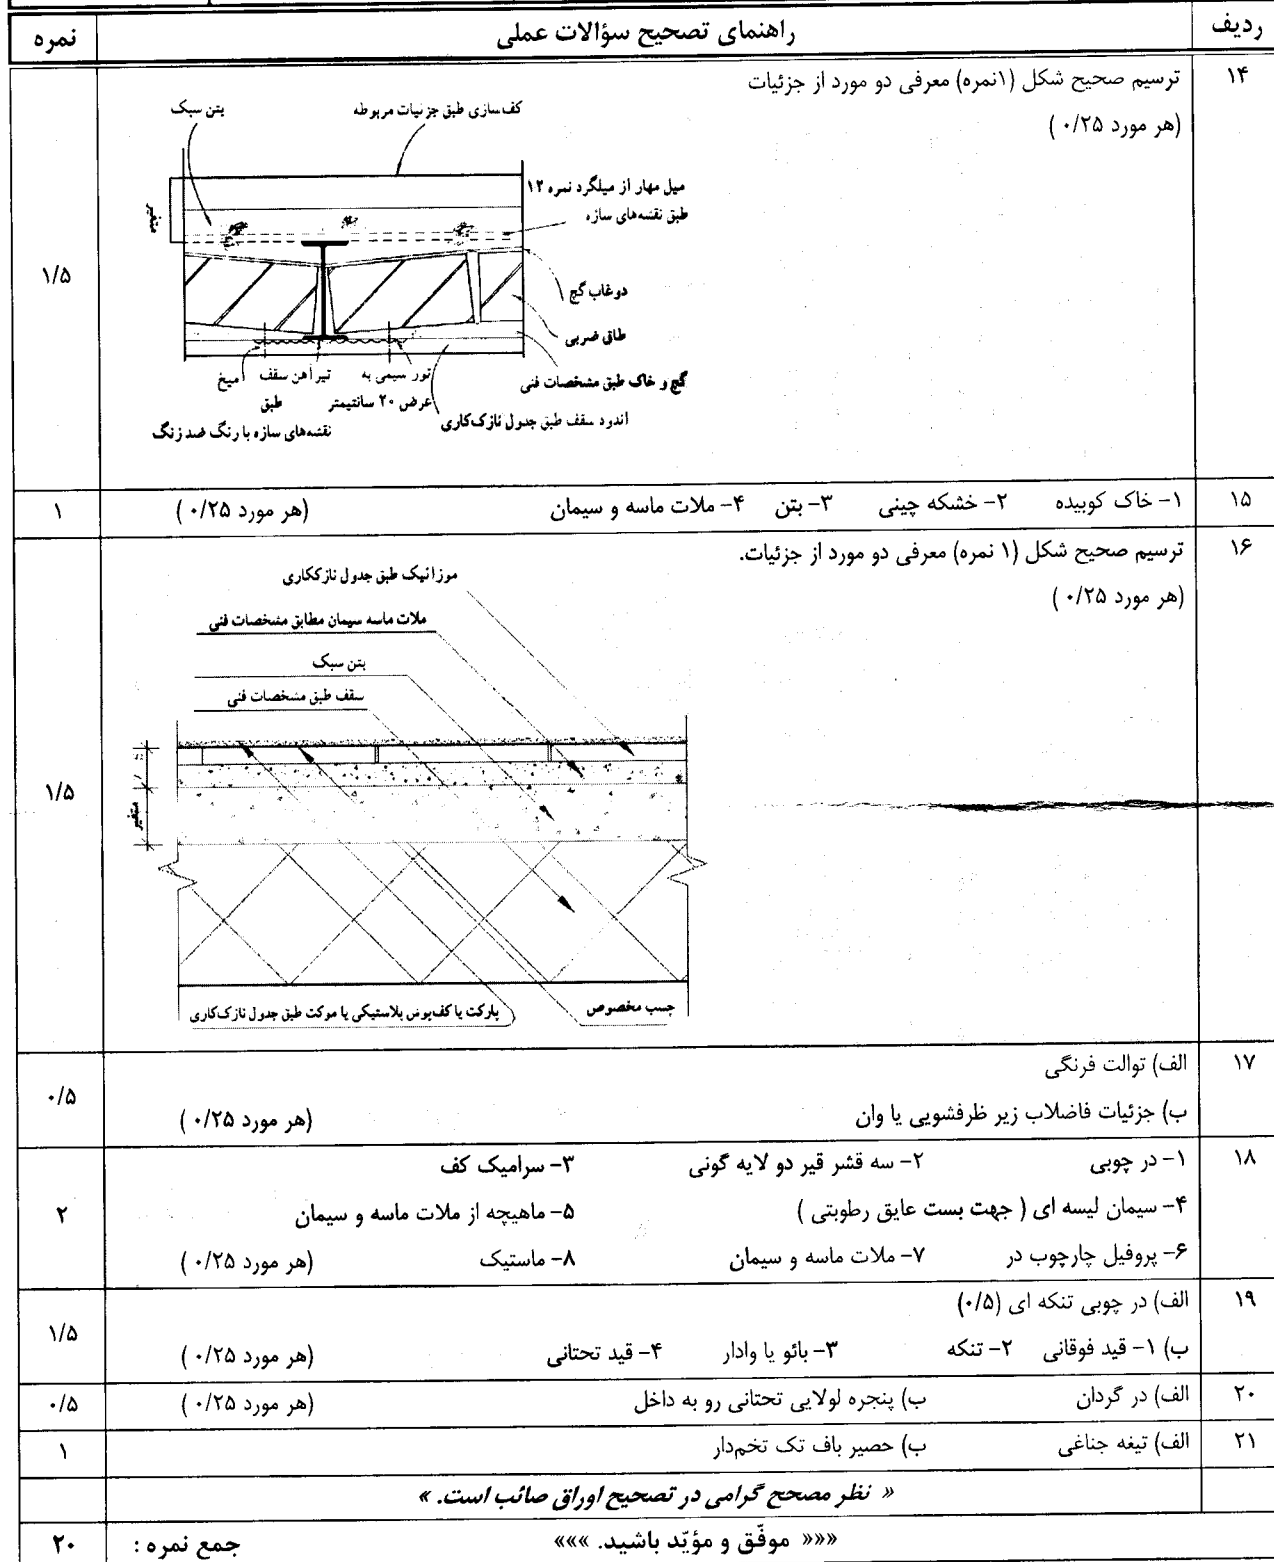 ردیف	راهنمای تصحیح سؤالات عملی	نمره
۱۴	ترسیم صحیح شکل (۱نمره) معرفی دو مورد از جزئیات
(هر مورد ۰/۲۵ )
کف‌سازی طبق جزئیات مربوطه
بتن سبک
میل مهار از میلگرد نمره ۱۲
طبق نقشه‌های سازه
متغیر
دوغاب گچ
طاق ضربی
گچ و خاک طبق مشخصات فنی
اندود سقف طبق جدول نازک‌کاری
تور سیمی به
عرض ۲۰ سانتیمتر
تیرآهن سقف
طبق
نقشه‌های سازه با رنگ ضد زنگ
میخ
۱/۵
۱۵	۱- خاک کوبیده	۲- خشکه چینی	۳- بتن	۴- ملات ماسه و سیمان	(هر مورد ۰/۲۵ )	۱
۱۶	ترسیم صحیح شکل (۱ نمره) معرفی دو مورد از جزئیات.
(هر مورد ۰/۲۵ )
موزائیک طبق جدول نازککاری
ملات ماسه سیمان مطابق مشخصات فنی
بتن سبک
سقف طبق مشخصات فنی
متغیر
چسب مخصوص
پارکت یا کف‌پوش پلاستیکی یا موکت طبق جدول نازک‌کاری
۱/۵
۱۷	الف) توالت فرنگی
ب) جزئیات فاضلاب زیر ظرفشویی یا وان	(هر مورد ۰/۲۵ )	۰/۵
۱۸	۱- در چوبی	۲- سه قشر قیر دو لایه گونی	۳- سرامیک کف
۴- سیمان لیسه ای ( جهت بست عایق رطوبتی )	۵- ماهیچه از ملات ماسه و سیمان	۲
۶- پروفیل چارچوب در	۷- ملات ماسه و سیمان	۸- ماستیک	(هر مورد ۰/۲۵ )
۱۹	الف) در چوبی تنکه ای (۰/۵)
ب) ۱- قید فوقانی	۲- تنکه	۳- بائو یا وادار	۴- قید تحتانی	(هر مورد ۰/۲۵ )	۱/۵
۲۰	الف) در گردان	ب) پنجره لولایی تحتانی رو به داخل	(هر مورد ۰/۲۵ )	۰/۵
۲۱	الف) تیغه جناغی	ب) حصیر باف تک تخم‌دار	۱
« نظر مصحح گرامی در تصحیح اوراق صائب است. »
««« موفّق و مؤیّد باشید. »»»	جمع نمره :	۲۰